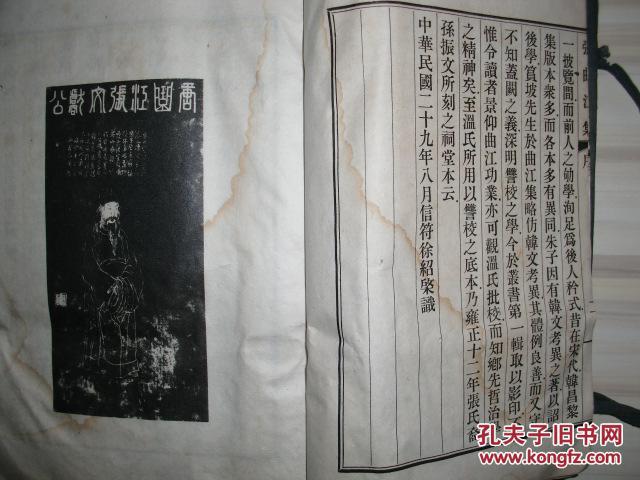 張曲江集序
一披覽間而前人之劬學洵足爲後人矜式昔在宋代韓昌黎
集版本衆多而各本多有異同朱子因有韓文考異之著以詔
後學篔坡先生於曲江集略仿韓文考異其體例良善而又守
不知蓋闕之義深明讐校之學今於叢書第一輯取以影印不
惟令讀者景仰曲江功業亦可觀溫氏批校而知鄉先哲治學
之精神矣至溫氏所用以讐校之底本乃雍正十二年張氏裔
孫振文所刻之祠堂本云
中華民國二十九年八月信符徐紹棨識
唐曲江張文獻公
孔夫子旧书网
www.kongfz.com